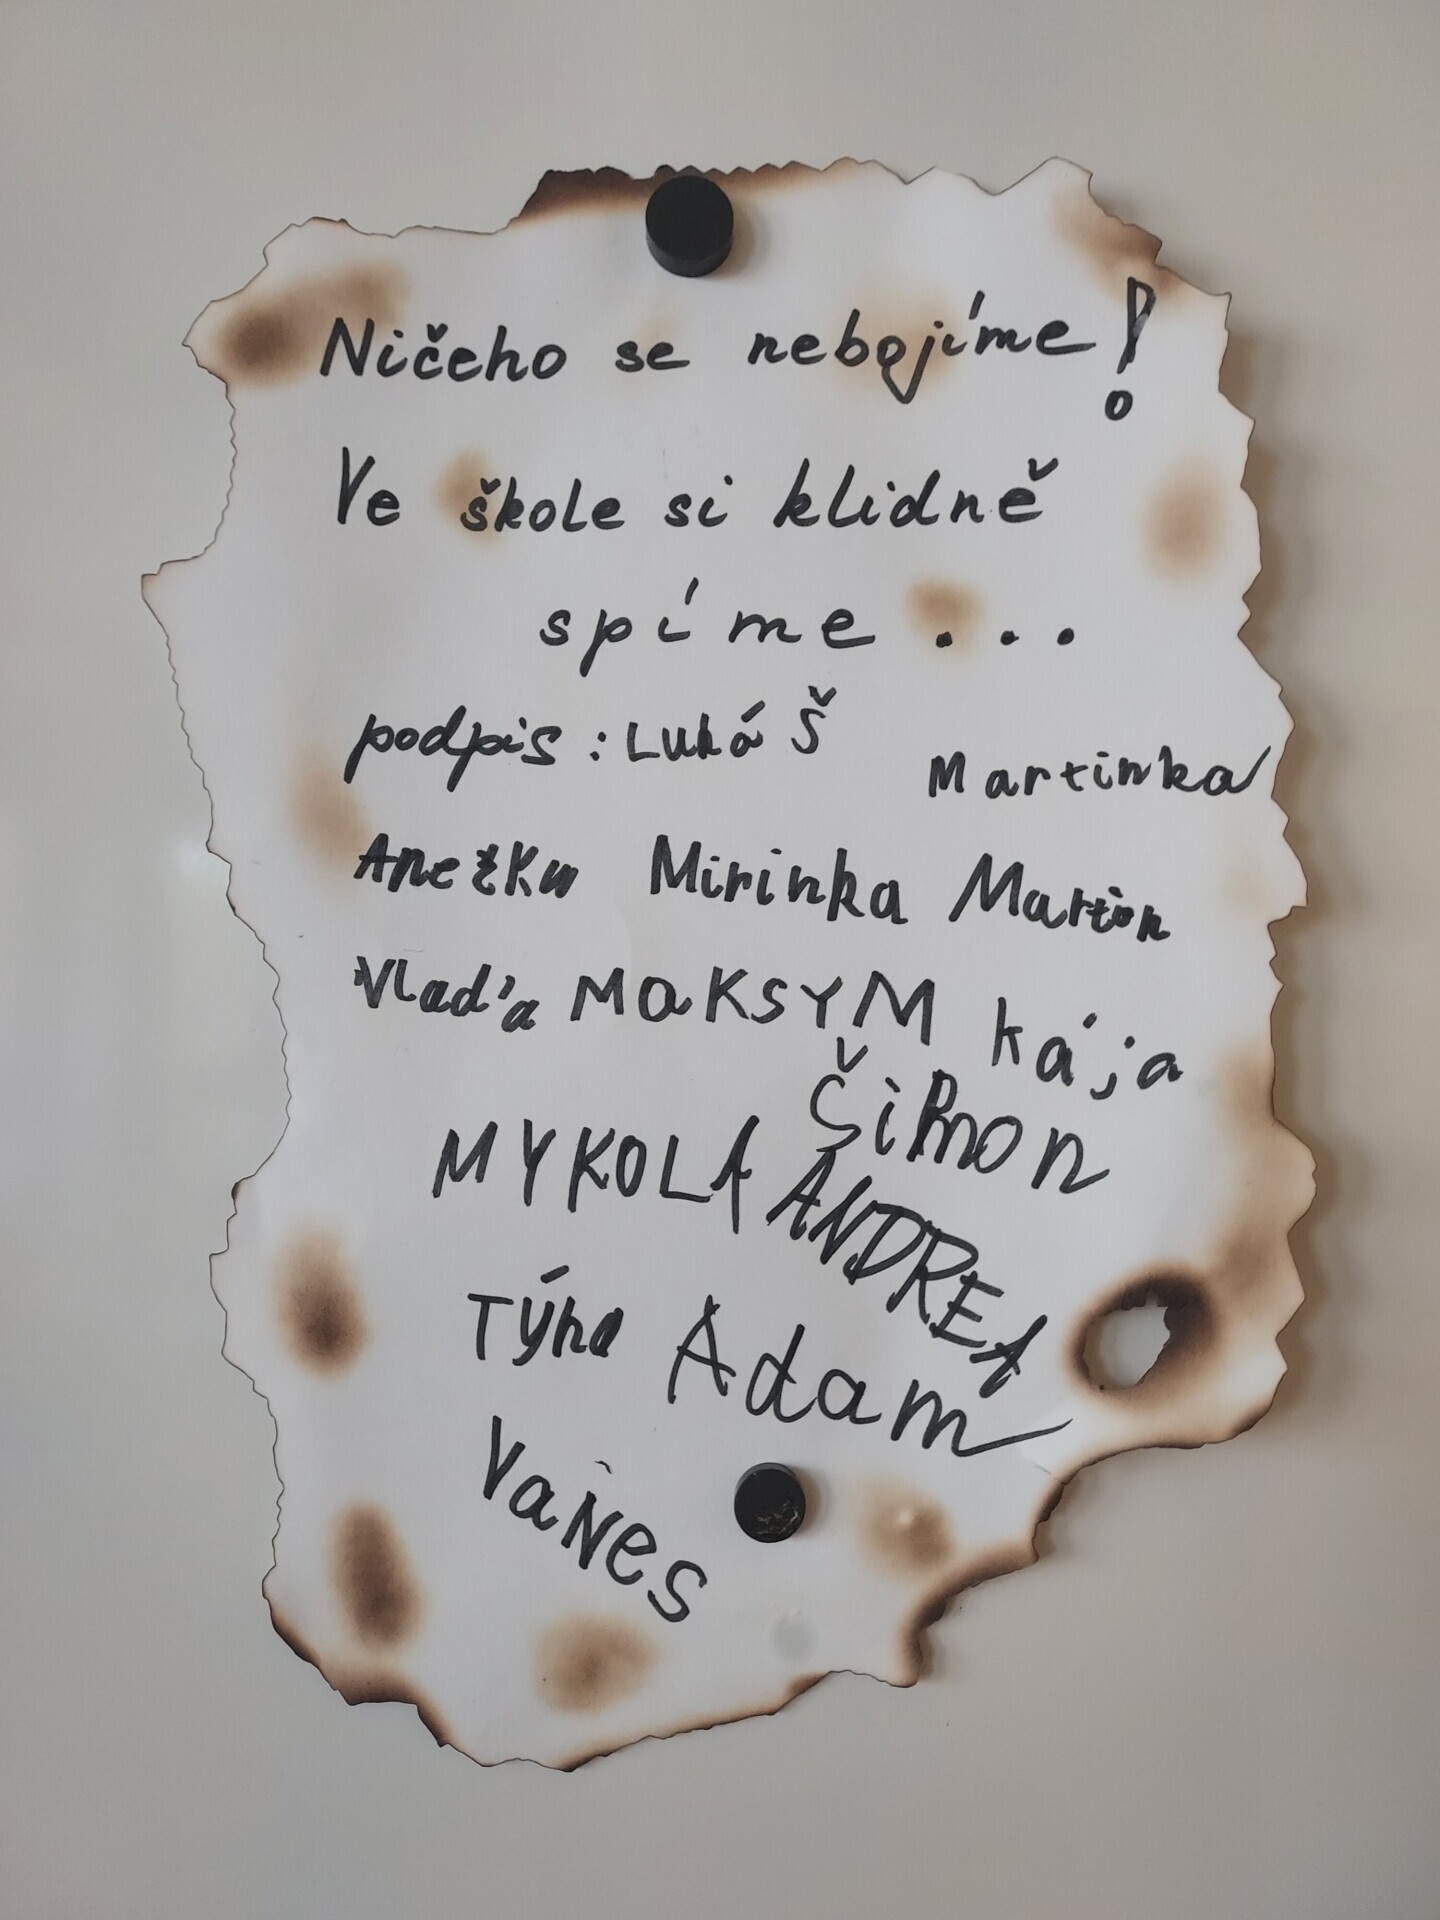 Ničeho se nebojíme!
Ve škole si klidně
spíme...
podpis: Lukáš Martinka
Anežka Mirinka Martin
Vlaďa MaKSYM Kája
Šimon
MYKOLA ANDREA
Týna Adam
VaNes